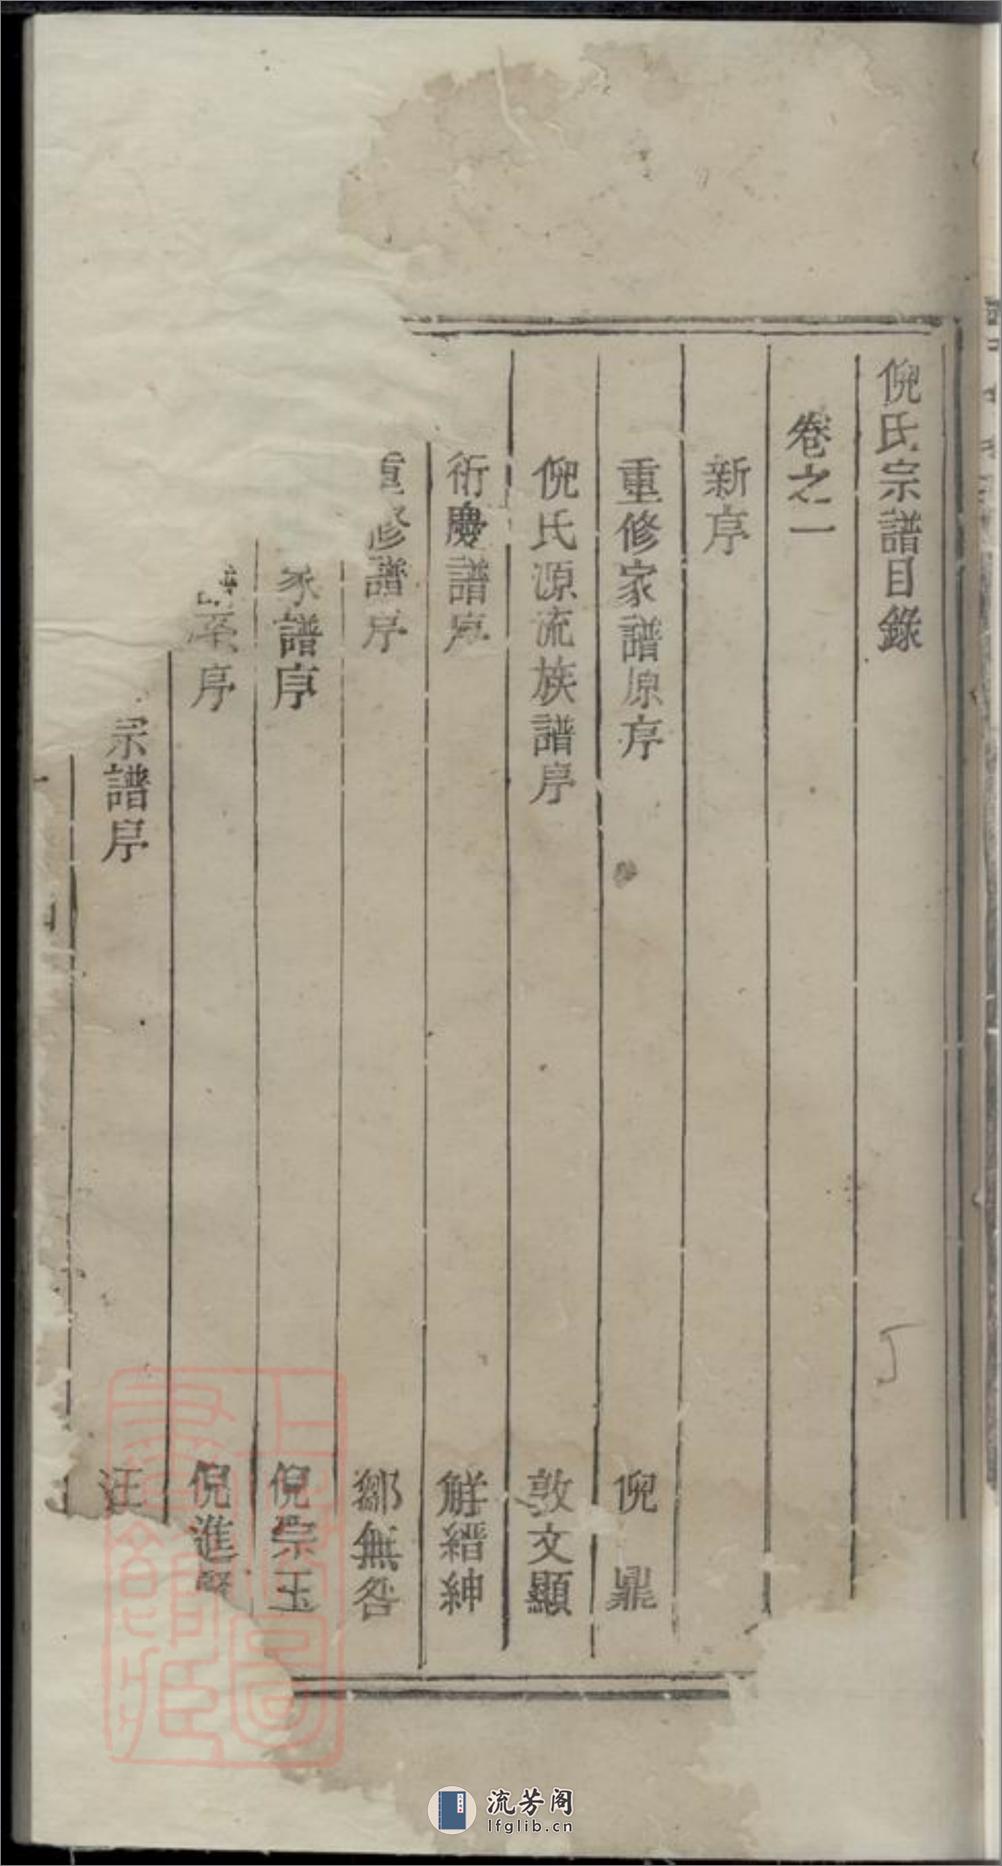 倪氏宗譜目錄
卷之一
新序
重修家譜原序 倪鼎
倪氏源流族譜序 敦文顯
衍慶譜序 解縉紳
重修譜序 鄒無咎
家譜序 倪宗玉
序 倪進賢
宗譜序 汪
上海圖書館藏
流芳阁
lfglib.cn